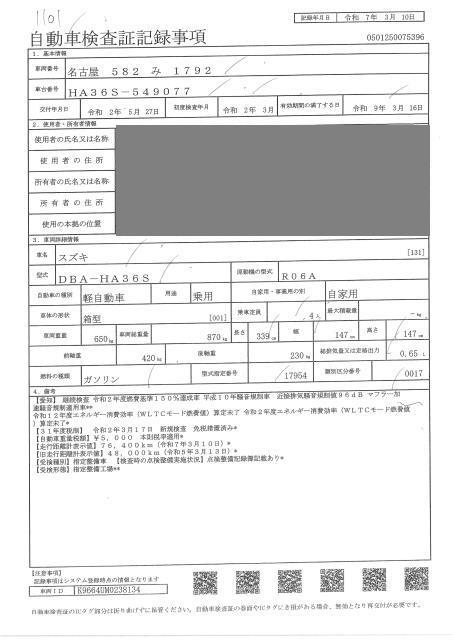 1101
記録年月日 令和 7年 3月 10日
自動車検査証記録事項
0501250075396
1. 基本情報
車両番号 名古屋 582 み 1792
車台番号 HA36S-549077
交付年月日 令和 2年 5月 27日 初度検査年月 令和 2年 3月 有効期間の満了する日 令和 9年 3月 16日
2. 使用者・所有者情報
使用者の氏名又は名称
使用者の住所
所有者の氏名又は名称
所有者の住所
使用の本拠の位置
3. 車両詳細情報
車名 スズキ [131]
型式 DBA-HA36S 原動機の型式 R06A
自動車の種別 軽自動車 用途 乗用 自家用・事業用の別 自家用
車体の形状 箱型 [001] 乗車定員 4人 最大積載量 -kg
車両重量 650kg 車両総重量 870kg 長さ 339cm 幅 147cm 高さ 147cm
前軸重 420kg 後軸重 230kg 総排気量又は定格出力 0.65 L
燃料の種類 ガソリン 型式指定番号 17954 類別区分番号 0017
4. 備考
【愛知】 継続検査 令和2年度燃費基準150%達成車 平成10年騒音規制車 近接排気騒音規制値96dB マフラー加
速騒音規制適用車**
令和12年度エネルギー消費効率(WLTCモード燃費値)算定未了 令和2年度エネルギー消費効率(WLTCモード燃費値
)算定未了*
【31年度税制】 令和2年3月17日 新規検査 免税措置済み*
【自動車重量税額】¥5,000 本則税率適用*
【走行距離計表示値】76,400km(令和7年3月10日)*
【旧走行距離計表示値】48,000km(令和5年3月13日)*
【受検種別】指定整備車 【検査時の点検整備実施状況】点検整備記録簿記載あり*
【受検形態】指定整備工場**
【注意事項】
記録事項はシステム登録時点の情報となります
車両ID K9664UM0238134
自動車検査証のICタグ部分は折り曲げずに保管ください。自動車検査証の券面やICタグにき損がある場合、無効となり再交付が必要です。